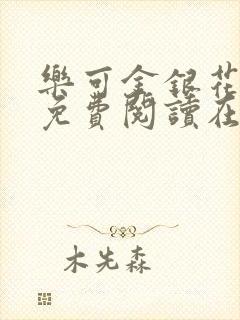 樂可金銀花
免費閱讀在
木先森